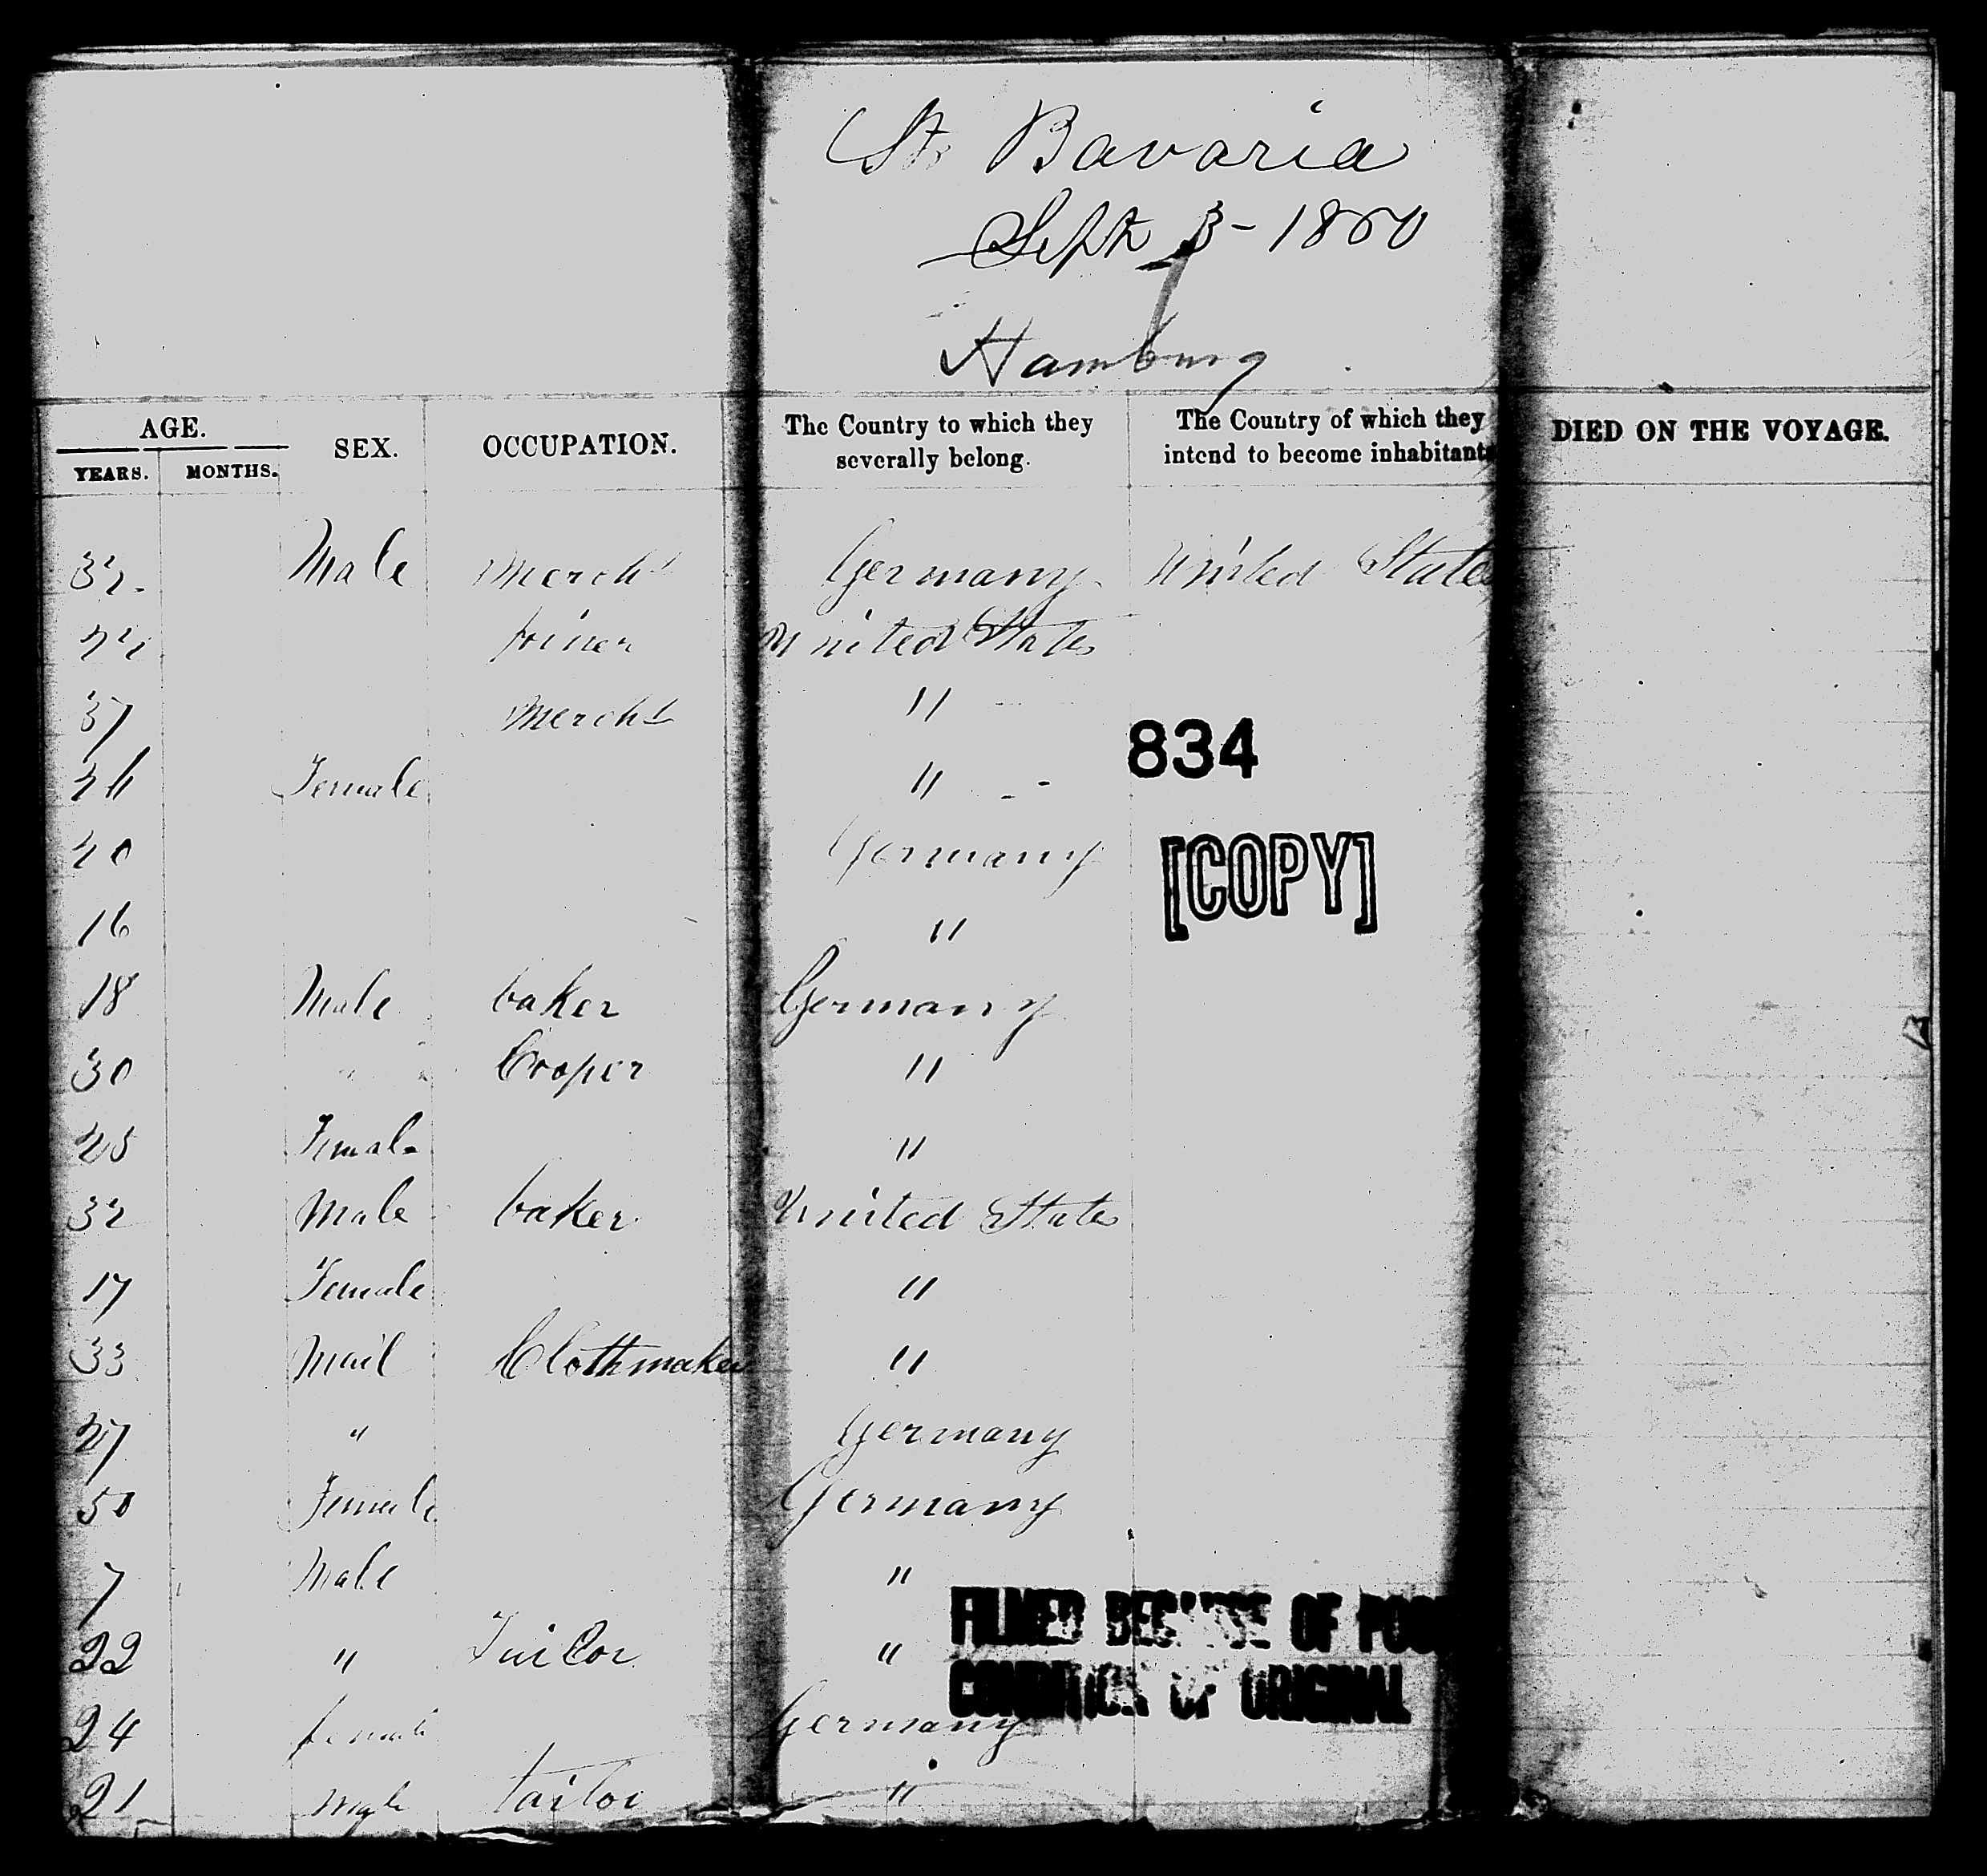 St. Bavaria
Sept 3 - 1860
Hamburg
AGE. SEX. OCCUPATION. The Country to which they severally belong. The Country of which they intend to become inhabitants DIED ON THE VOYAGE.
YEARS. MONTHS.
32 Male Mercht Germany United States
22 joiner United States
37 Mercht "
26 Female "
20 Germany
16 "
18 Male baker Germany
30 " Cooper "
25 Female "
32 Male baker United States
17 Female "
33 Mail Clothmaker "
27 " Germany
50 Female Germany
7 Male "
22 " Tailor "
24 female Germany
21 male tailor "
834
[COPY]
FILMED BECAUSE OF POOR
CONDITION OF ORIGINAL